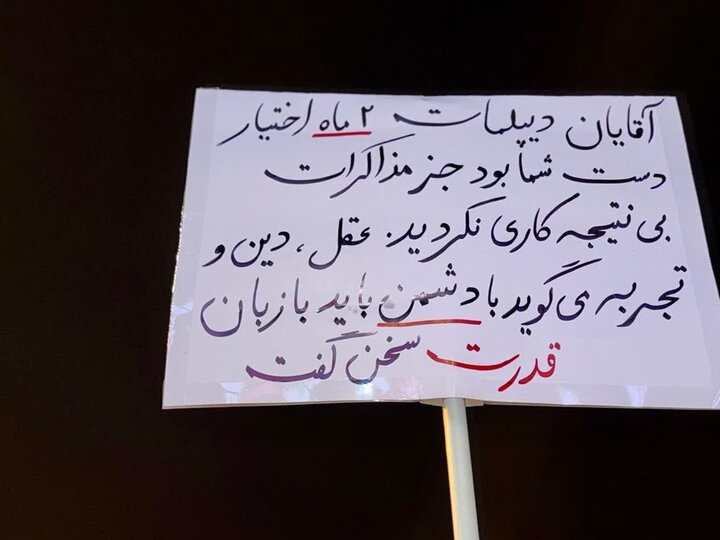 آقایان دیپلمات ۲ ماه اختیار
دست شما بود جز مذاکرات
بی نتیجه کاری نکردید. عقل، دین و
تجربه می گوید با دشمن باید با زبان
قدرت سخن گفت